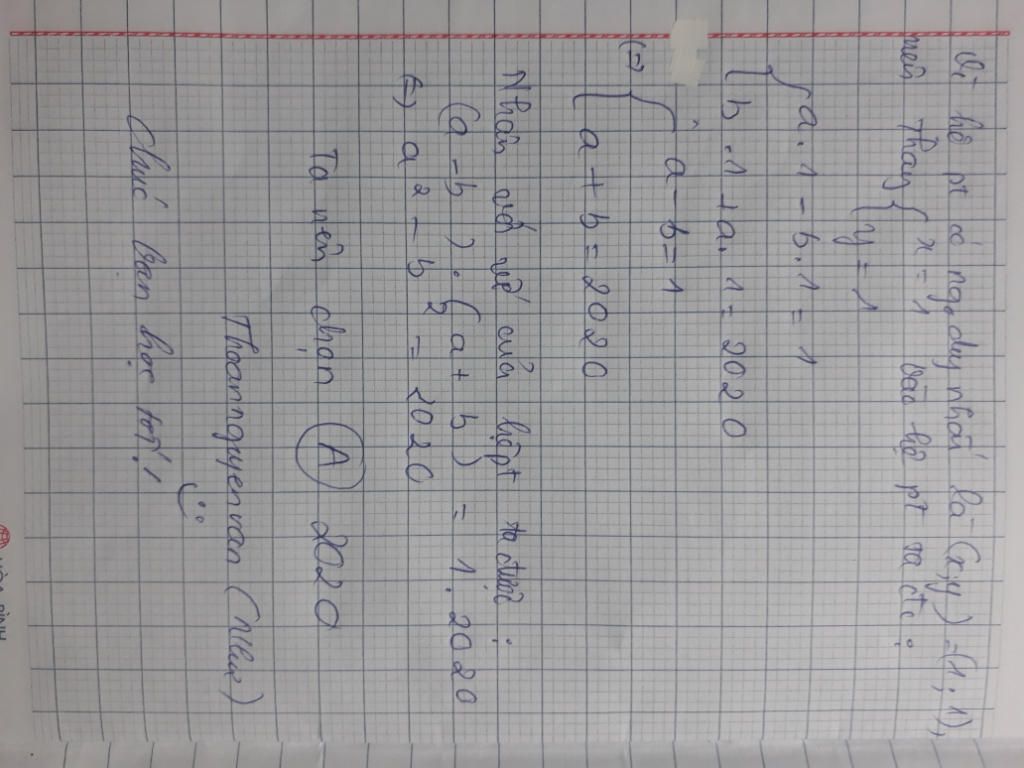 Vì hệ pt có ngo duy nhất là (x;y) = (1;1),
nên thay { x = 1 vào hệ pt ta đc:
{ y = 1
{ a.1 - b.1 = 1
{ b.1 + a.1 = 2020
(=) { a - b = 1
{ a + b = 2020
Nhân vế với vế của hệ pt ta được:
(a - b).(a + b) = 1.2020
(=) a² - b² = 2020
Ta nên chọn (A) 2020
Thoannguyenvan (Nhue)
Chúc bạn học tốt!